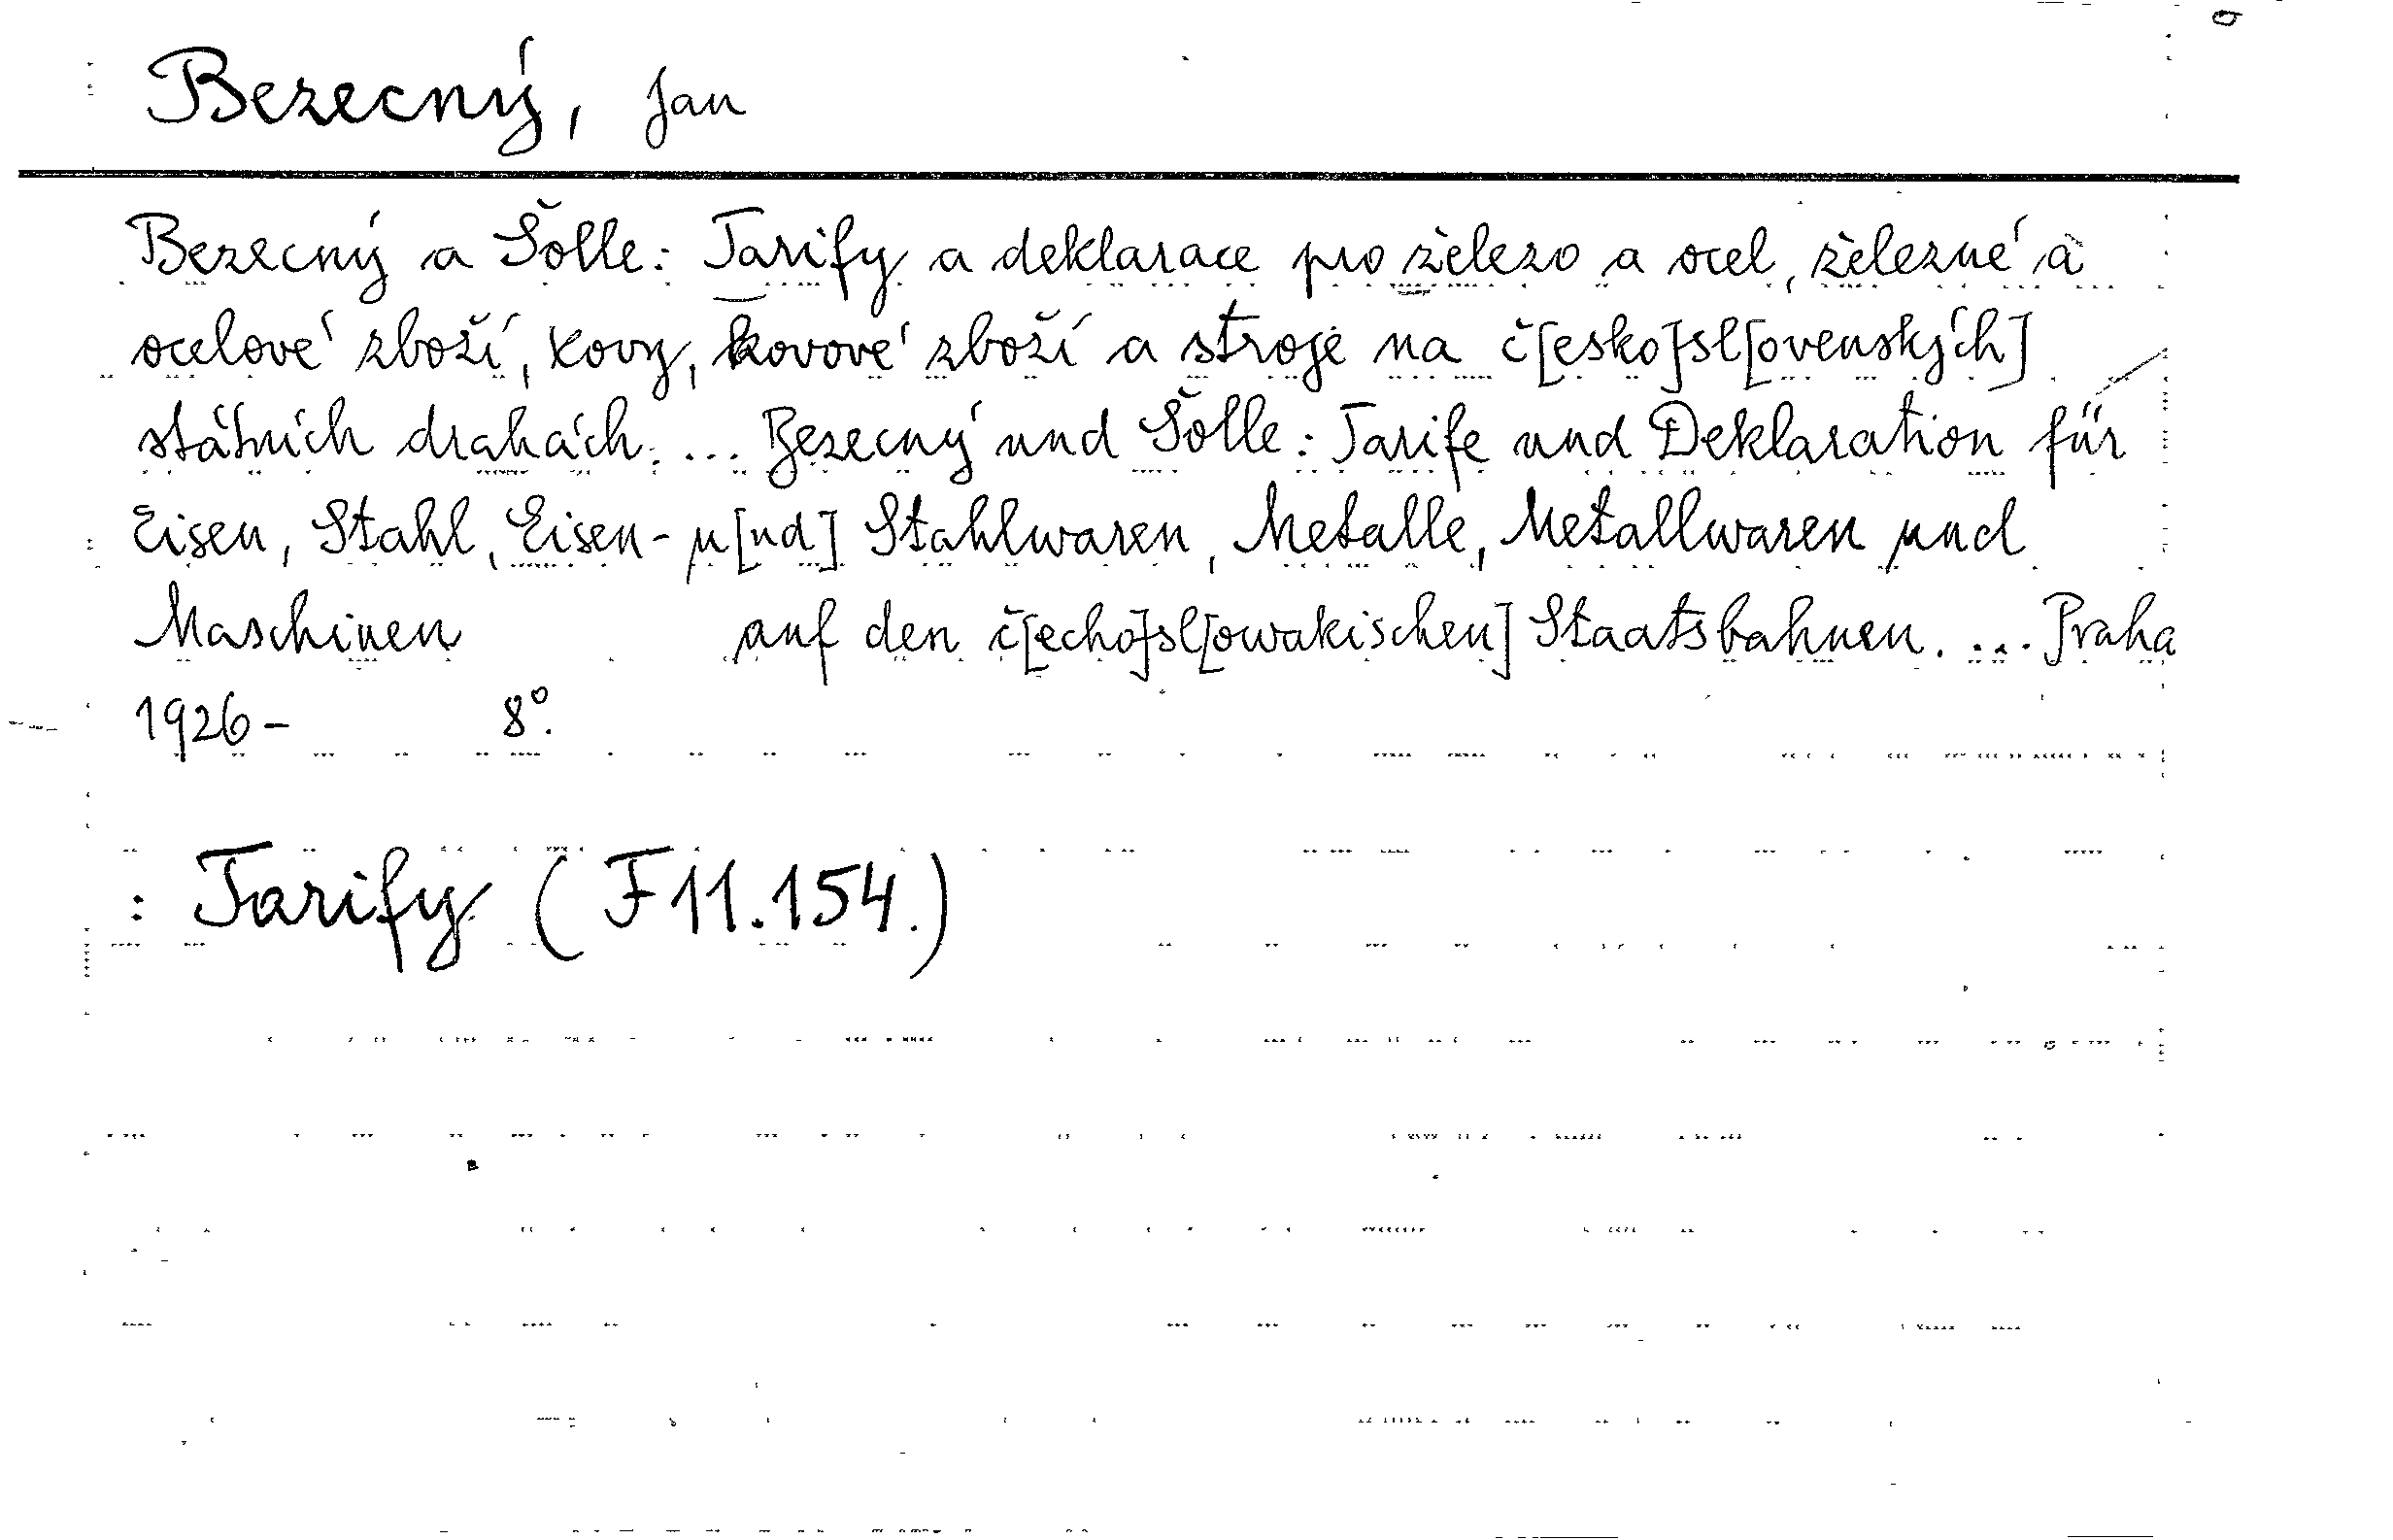 Bezecný, Jan
Bezecný a Šolle: Tarify a deklarace pro železo a ocel, železné a
ocelové zboží, kovy, kovové zboží a stroje na č[esko]sl[ovenských]
státních drahách. ... Bezecný und Šolle: Tarife und Deklaration für
Eisen, Stahl, Eisen- u[nd] Stahlwaren, Metalle, Metallwaren und
Maschinen auf den č[echo]sl[owakischen] Staatsbahnen. ... Praha
1926- 8°.
: Tarify (F 11.154.)